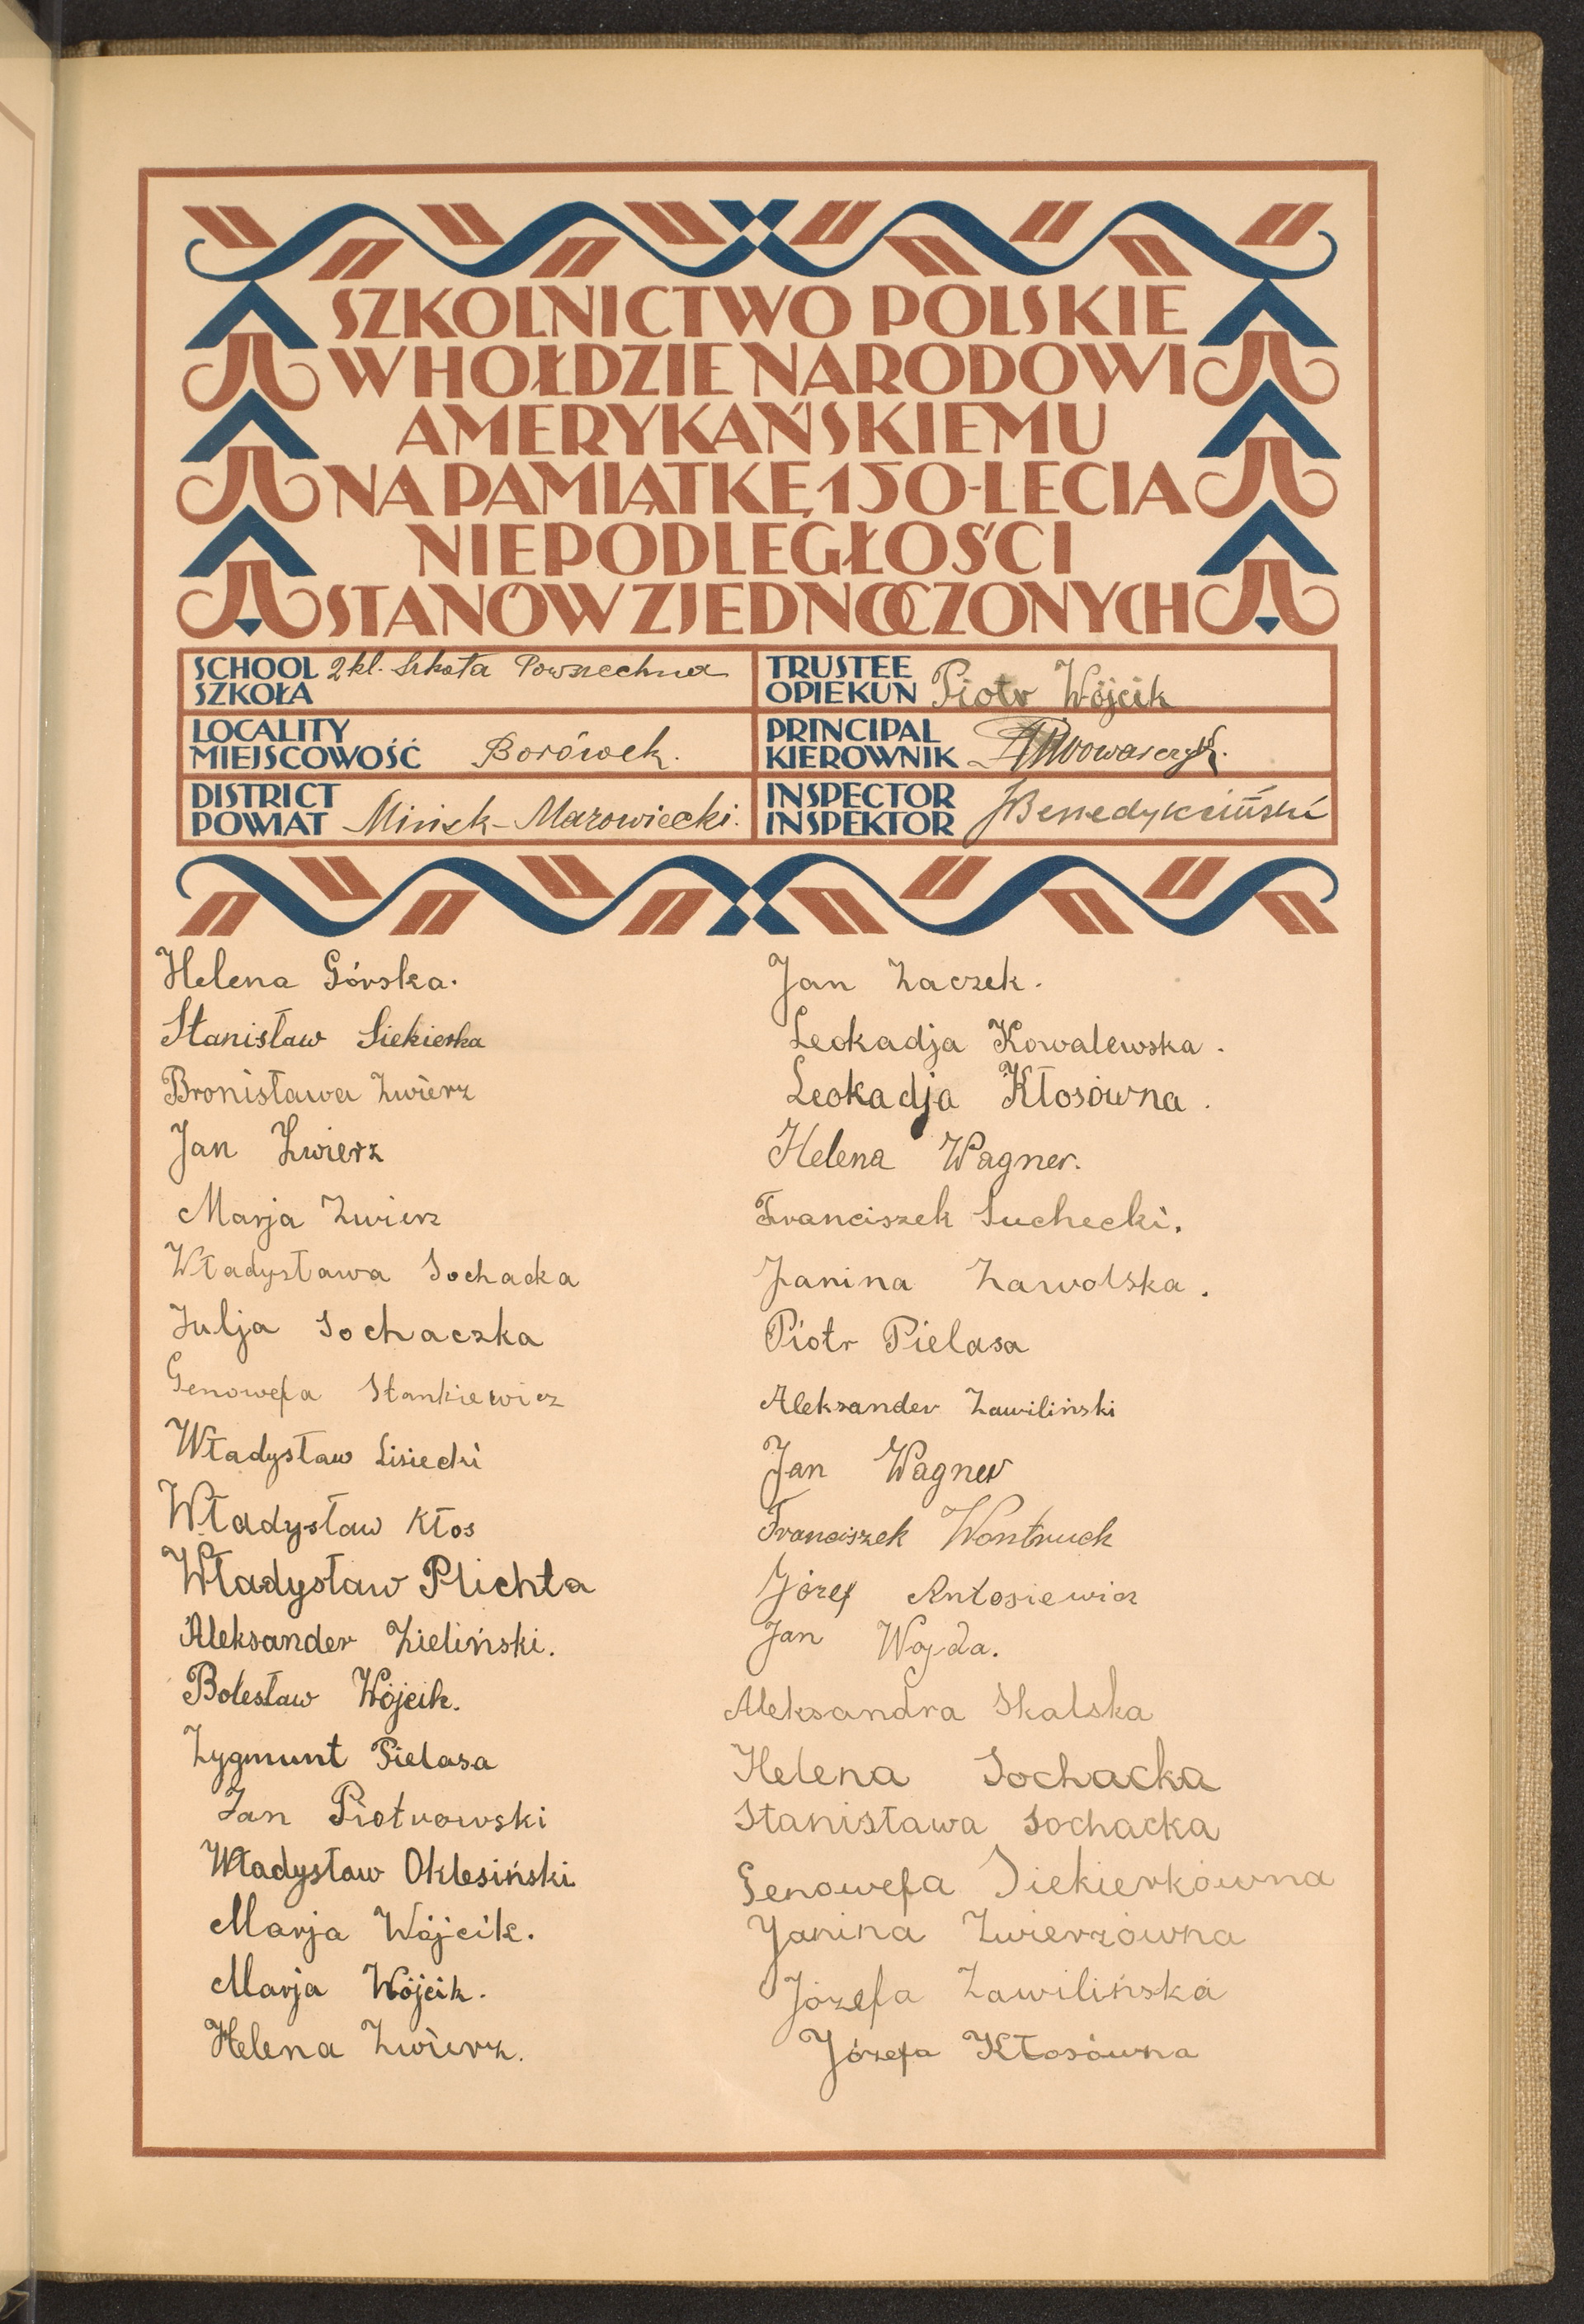 SZKOLNICTWO POLSKIE
W HOŁDZIE NARODOWI
AMERYKAŃSKIEMU
NA PAMIĄTKĘ 150-LECIA
NIEPODLEGŁOŚCI
STANÓW ZJEDNOCZONYCH
SCHOOL 2 kl. Szkoła Powszechna
SZKOŁA
TRUSTEE
OPIEKUN Piotr Wójcik
LOCALITY
MIEJSCOWOŚĆ Borówek.
PRINCIPAL
KIEROWNIK
DISTRICT
POWIAT Mińsk-Mazowiecki.
INSPECTOR
INSPEKTOR
Helena Górska.
Stanisław Siekierka
Bronisława Zwierz
Jan Zwierz
Marja Zwierz
Władysława Sochacka
Julja Sochaczka
Genowefa Stankiewicz
Władysław Lisiecki
Władysław Kłos
Władysław Plichta
Aleksander Zieliński.
Bolesław Wójcik.
Zygmunt Pielasa
Jan Piotrowski
Władysław Oklesiński
Marja Wójcik.
Marja Wójcik.
Helena Zwierz.
Jan Zaczek.
Leokadja Kowalewska.
Leokadja Kłosówna.
Helena Wagner.
Franciszek Suchecki.
Janina Zawolska.
Piotr Pielasa
Aleksander Zawiliński
Jan Wagner
Franciszek
Józef Antosiewicz
Jan Wojda.
Aleksandra Skalska
Helena Sochacka
Stanisława Sochacka
Genowefa Siekierkówna
Janina Zwierzówna
Józefa Zawilińska
Józefa Kłosówna